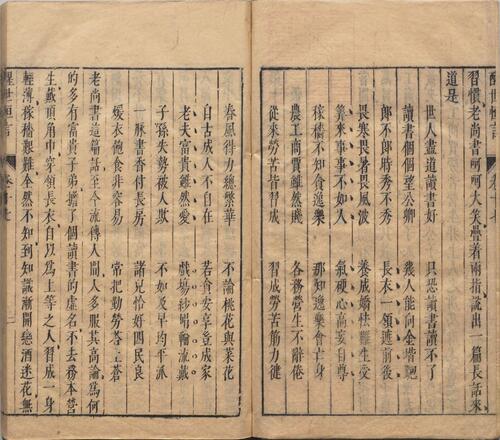 醒世恒言　卷十
習慣老尚書呵呵大笑疊着兩指說出一篇長話來
道是
世人盡道讀書好　只恐讀書讀不了
讀書個個望公卿　幾人能向金堦跑
郎不郎時秀不秀　長衣一領遮前後
畏寒畏暑畏風波　養成嬌怯難生受
算來事事不如人　氣硬心高妄自尊
稼穡不知貪逸樂　那知逸樂會亡身
農工商賈雖然賤　各務營生不辭倦
從來勞苦皆習成　習成勞苦筋力健
春風得力總繁華　不論桃花與菜花
自古成人不自在　若貪安享豈成家
老夫富貴雖然愛　戲場紗帽輪流戴
子孫失勢被人欺　不如及早均平派
一脈書香付長房　諸兒恰好四民良
煖衣飽食非容易　常把勤勞答上蒼
老尚書這篇話至今流傳人間人多服其高論爲何
的多有富貴子弟擔了個讀書的虛名不去務本營
生戴頂角巾穿領長衣自以爲上等之人習成一身
輕薄稼穡艱難全然不知到知識漸開戀酒迷花無
醒世恒言　卷十七　二